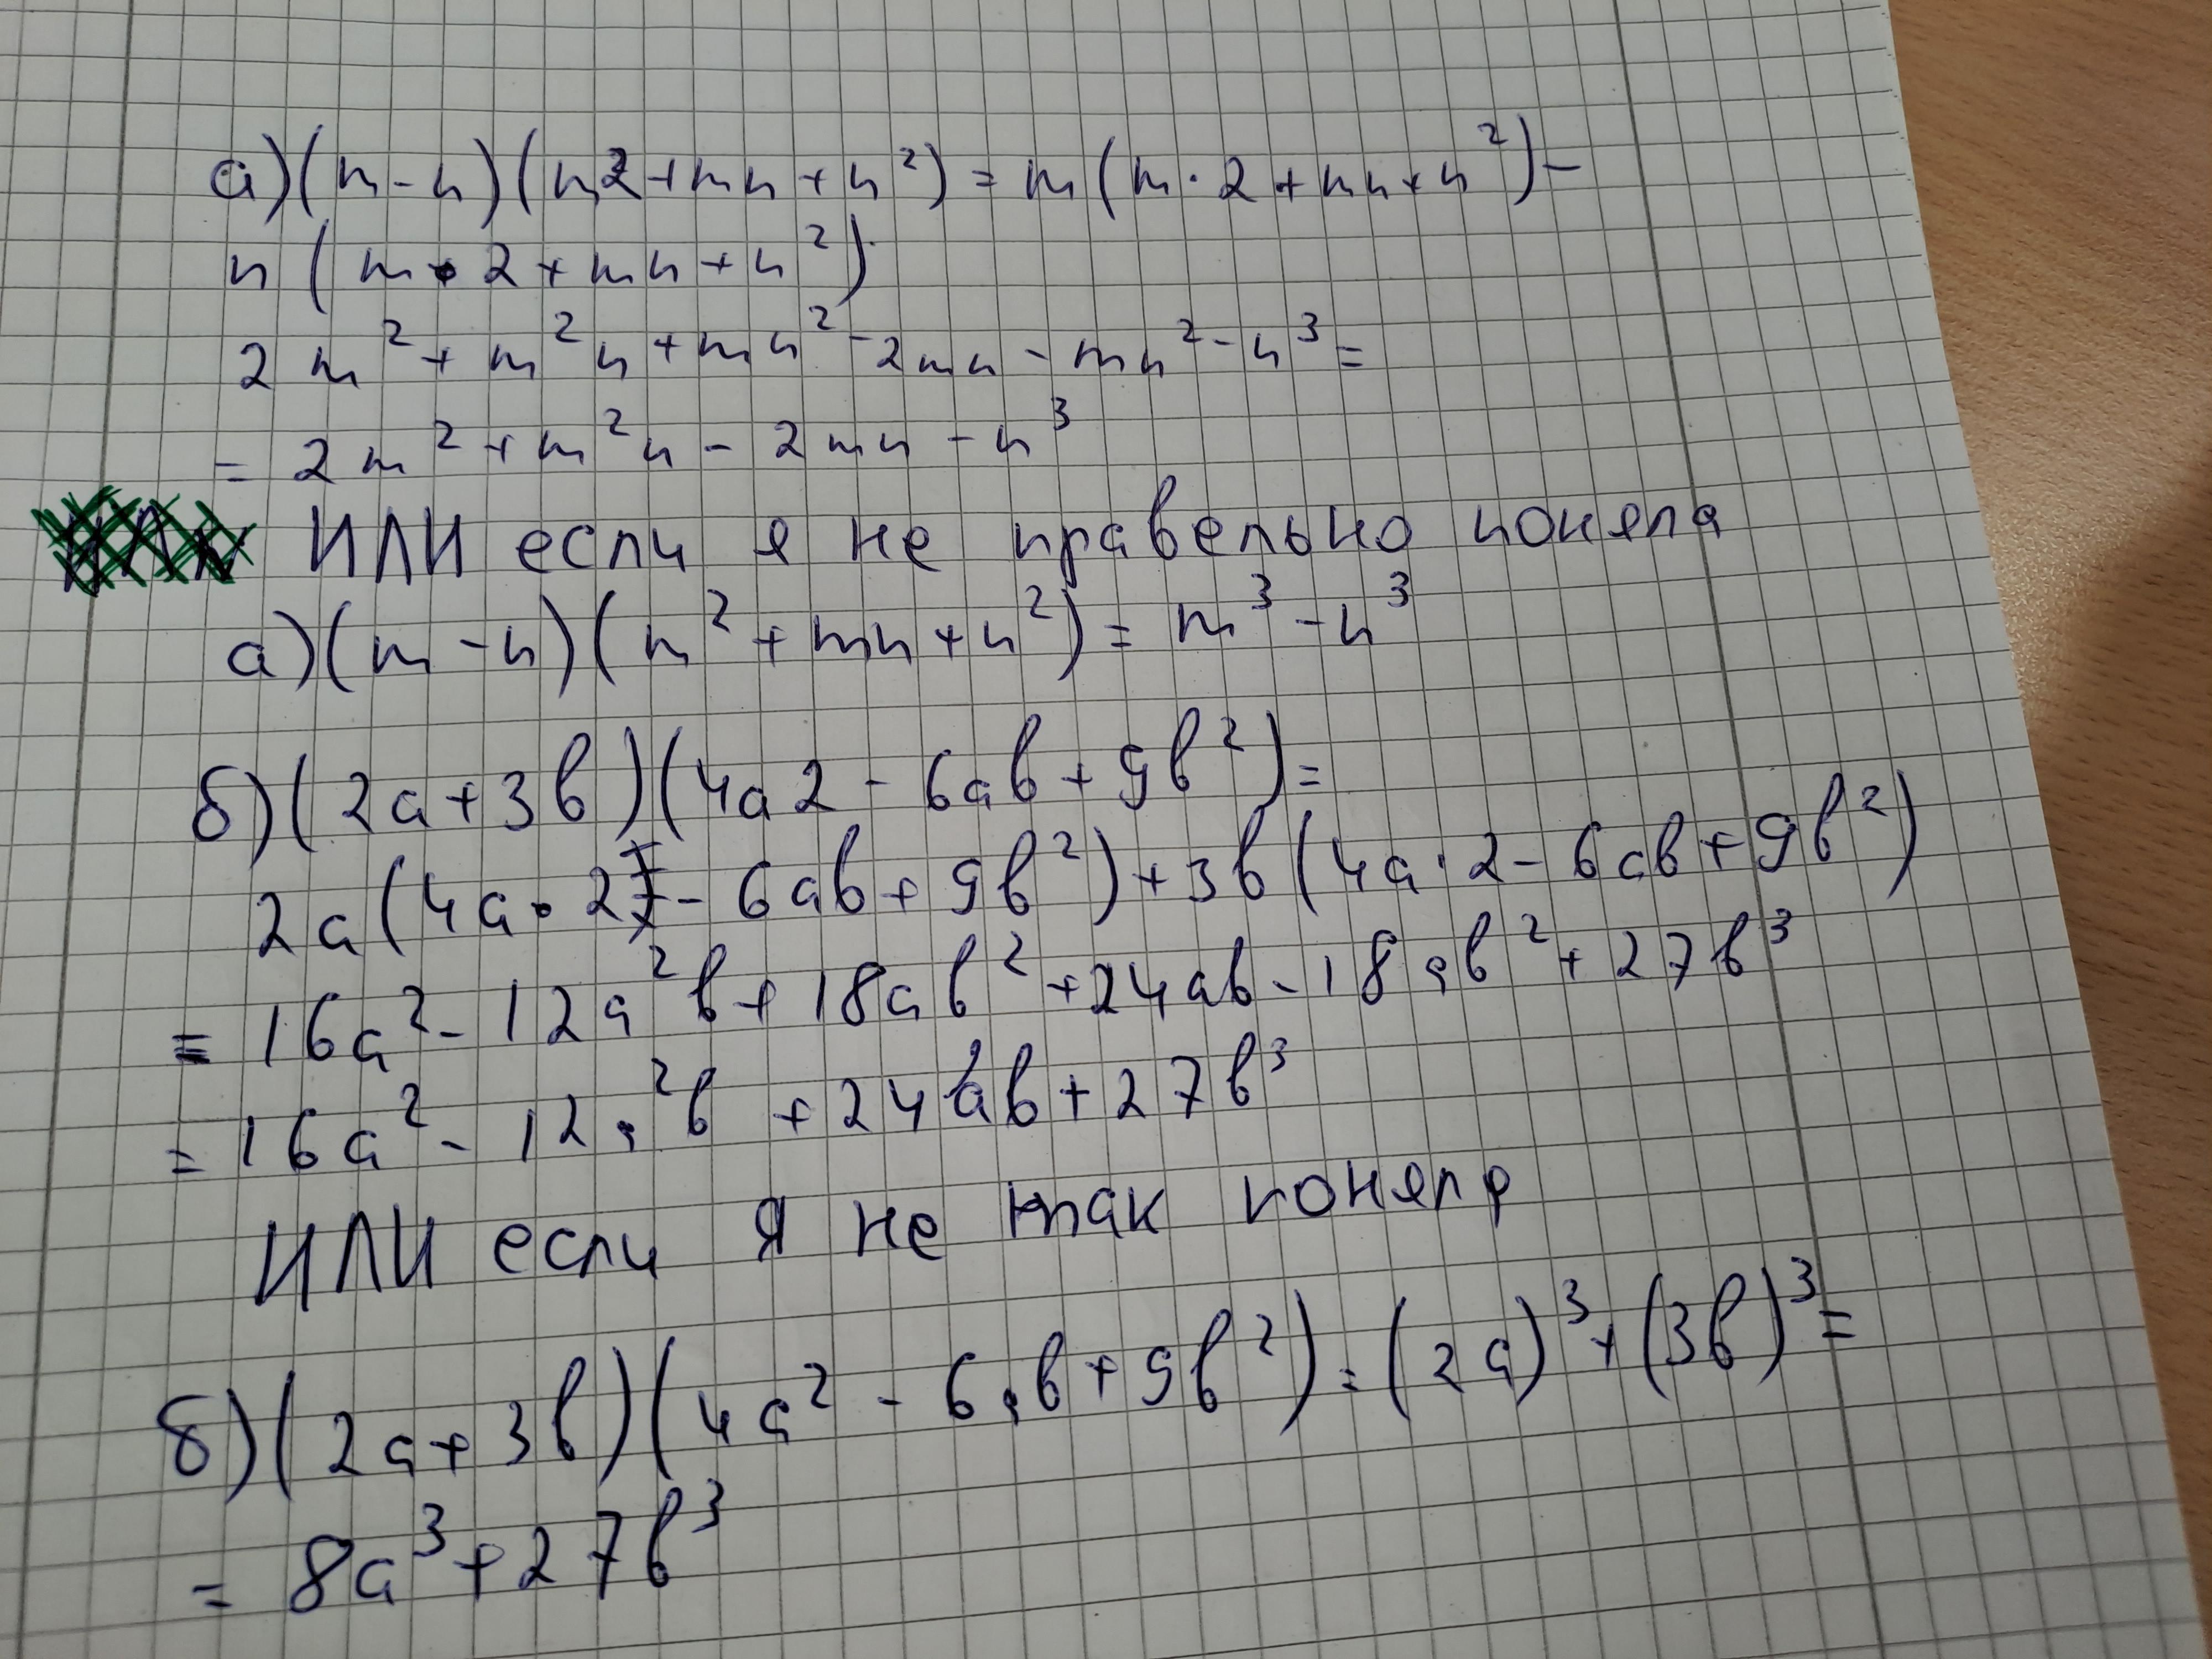 а) (m - n) (m2 + mn + n²) = m (m · 2 + mn + n²) -
n (m · 2 + mn + n²)
2 m² + m² n + m n² - 2mn - mn² - n³ =
= 2 m² + m² n - 2 mn - n³
ИЛИ если я не правельно поняла
а) (m - n) (m² + mn + n²) = m³ - n³
б) (2a + 3b) (4a2 - 6ab + 9b²) =
2a (4a · 2 - 6ab + 9b²) + 3b (4a · 2 - 6ab + 9b²)
= 16a² - 12a²b + 18ab² + 24ab - 18ab² + 27b³
= 16a² - 12a²b + 24ab + 27b³
ИЛИ если я не так поняла
б) (2a + 3b) (4a² - 6ab + 9b²) = (2a)³ + (3b)³ =
= 8a³ + 27b³